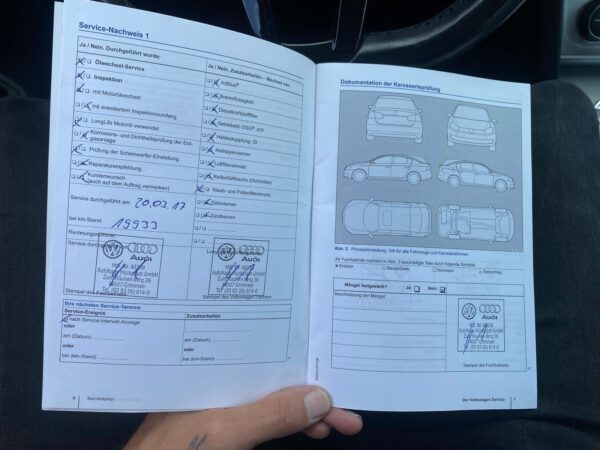 Service-Nachweis 1
Ja / Nein. Durchgeführt wurde:
Ölwechsel-Service
Inspektion
mit Motorölwechsel
mit erweitertem Inspektionsumfang
LongLife Motoröl verwendet
Korrosions- und Dichtheitsprüfung der Erdgasanlage
Prüfung der Scheinwerfer-Einstellung
Reparaturempfehlung
Kundenwunsch
(auch auf dem Auftrag vermerken)
Service durchgeführt am: 20.03.17
bei km-Stand: 19933
Rechnungsnummer:
Service durch
Audi
Stempel des Fac
Ja / Nein. Zusatzarbeiten – Wechsel von:
AdBlue®
Bremsflüssigkeit
Dieselkraftstofffilter
Getriebeöl: DSG®, ATF
Haldexkupplung: Öl
Keilrippenriemen
Luftfiltereinsatz
Reifenfüllflasche (Dichtmittel)
Staub- und Pollenfiltereinsatz
Zahnriemen
Zündkerzen
Audi
Stempel des Volkswagen Partners
Ihre nächsten Service-Termine
Service-Ereignis
Zusatzarbeiten
nach Service-Intervall-Anzeige
oder
am (Datum):
oder
bei (km-Stand):
am (Datum)
oder
bei (km-Stand):
6
Serviceplan
Dokumentation der Karosserieprüfung
Abb. 3 Prinzipdarstellung: Gilt für alle Fahrzeuge und Karosserieformen.
Ihr Fachbetrieb markiert in Abb. 3 beschädigte Teile durch folgende Symbole:
Kratzer
Beule/Delle
Korrosion
Steinschlag
Mängel festgestellt?
Ja:
Nein:
Beschreibung der Mängel:
Audi
Stempel des Fachbetriebs
Der Volkswagen Service
7